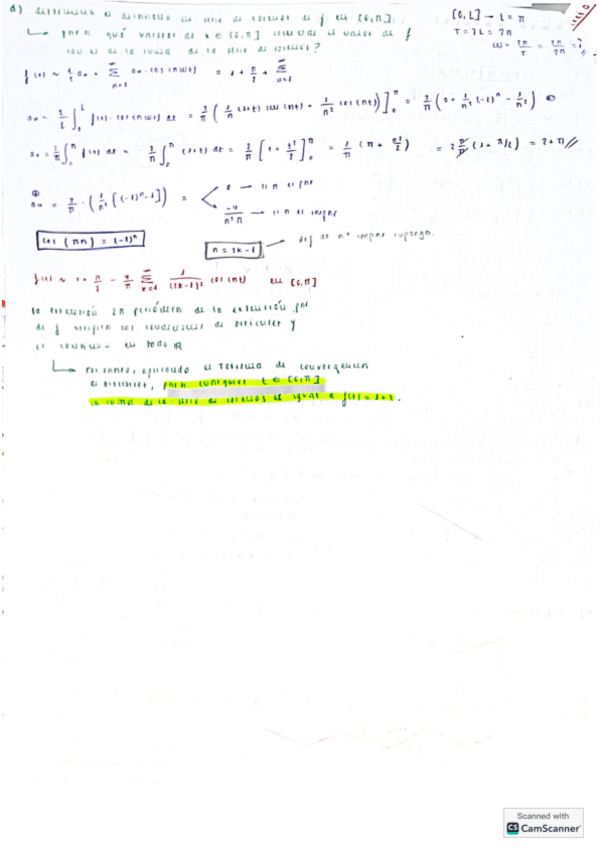 d) determina el desarrollo en serie de cosenos de f en [0,π].
[0,L] → L = π
T = 2L = 2π
ω = 2π/T = 2π/2π = 1
↳ para qué valores de x ∈ [0,π] coincide el valor de f
con el de la suma de la serie de cosenos?
f(t) ~ 1/2 a₀ + Σ n=1 ∞ aₙ · cos(nωt) = 1 + π/2 + Σ n=1 ∞
aₙ = 2/L ∫ f(t) · cos(nωt) dt = 2/π (1/n (1+t) sen(nt) + 1/n² cos(nt))]₀^π = 2/π (0 + 1/n² (-1)ⁿ - 1/n²)
a₀ = ∫₀^π f(t) dt = 2/π ∫₀^π (1+t) dt = 2/π [t + t²/2]₀^π = 2/π (π + π²/2) = 2 (1 + π/2) = 2 + π //
aₙ = 2/π · (1/n² [(-1)ⁿ - 1]) = 0 → si n es par
-4/n²π → si n es impar
cos(πn) = (-1)ⁿ
n = 2k-1
def de nº impar
f(t) ~ 1 + π/2 - 4/π Σ ∞ 1/(2k-1)² cos(nt) en [0,π]
la extensión 2π periódica de la extensión par
de f verifica las condiciones de Dirichlet y
es continua en todo ℝ
↳ Por tanto, aplicando el teorema de convergencia
de Dirichlet, para cualquier t ∈ [0,π]
la suma de la serie de cosenos es igual a f(t) = 1+t.
Scanned with
CS CamScanner